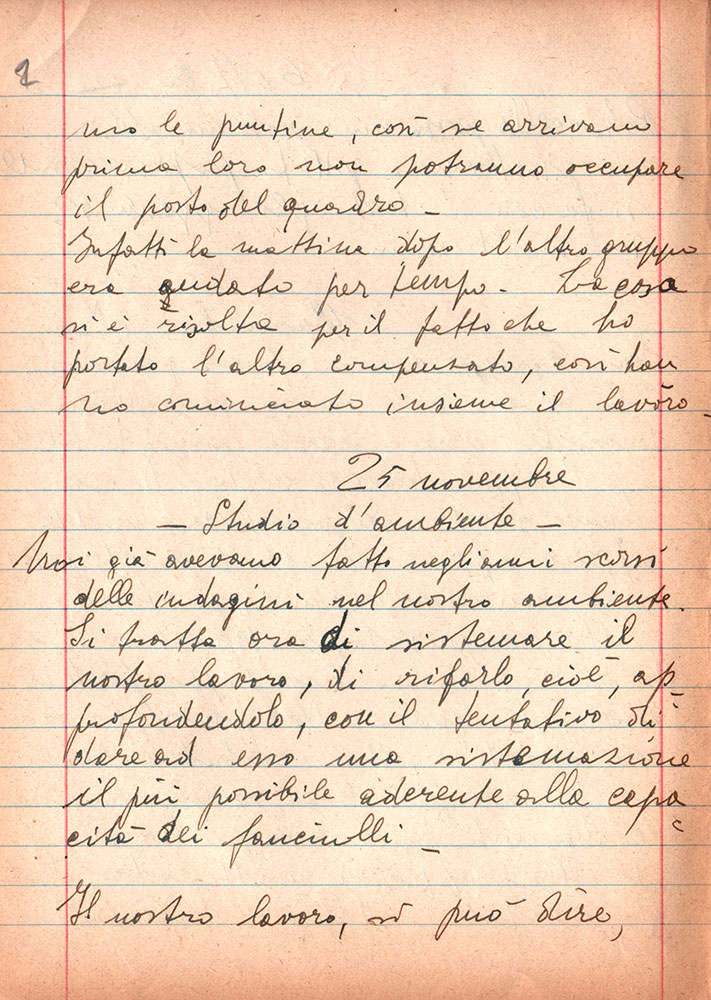 2
mo le puntine, così se arrivano
prima loro non potranno occupare
il posto del quadro _
Infatti la mattina dopo l'altro gruppo
era andato per tempo. La cosa
si è risolta per il fatto che ho
portato l'altro compensato, così han
no cominciato insieme il lavoro _
25 novembre
_ Studio d'ambiente _
Noi già avevamo fatto negli anni scorsi
delle indagini nel nostro ambiente.
Si tratta ora di sistemare il
nostro lavoro, di rifarlo, cioè, ap-
profondendolo, con il tentativo di
dare ad esso una sistemazione
il più possibile aderente alla capa
cità dei fanciulli _
Il nostro lavoro, si può dire,